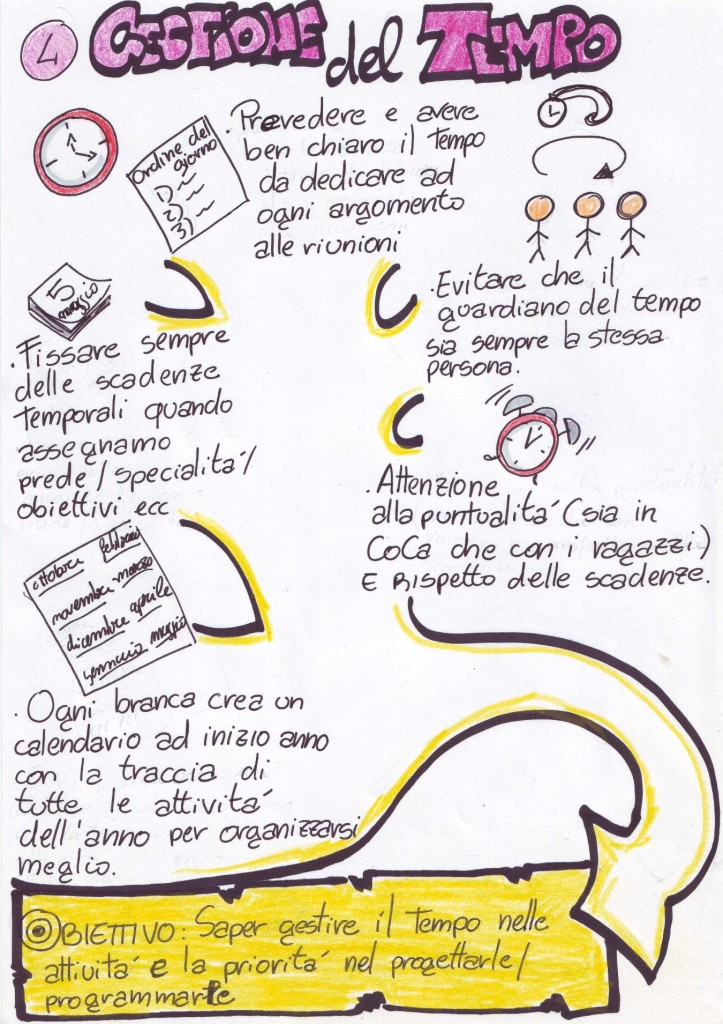 4 GESTIONE del TEMPO
ordine del
giorno
1) ~
2) ~
3) ~
. Prevedere e avere
ben chiaro il tempo
da dedicare ad
ogni argomento
alle riunioni
5
maggio
. Evitare che il
guardiano del tempo
sia sempre la stessa
persona.
. Fissare sempre
delle scadenze
temporali quando
assegnamo
prede/specialità/
obiettivi ecc
. Attenzione
alla puntualità (sia in
CoCa che con i ragazzi)
E Rispetto delle scadenze.
ottobre febbraio
novembre marzo
dicembre aprile
gennaio maggio
. Ogni branca crea un
calendario ad inizio anno
con la traccia di
tutte le attività
dell'anno per organizzarsi
meglio.
OBIETTIVO: Saper gestire il tempo nelle
attività e la priorità nel progettarle/
programmarle